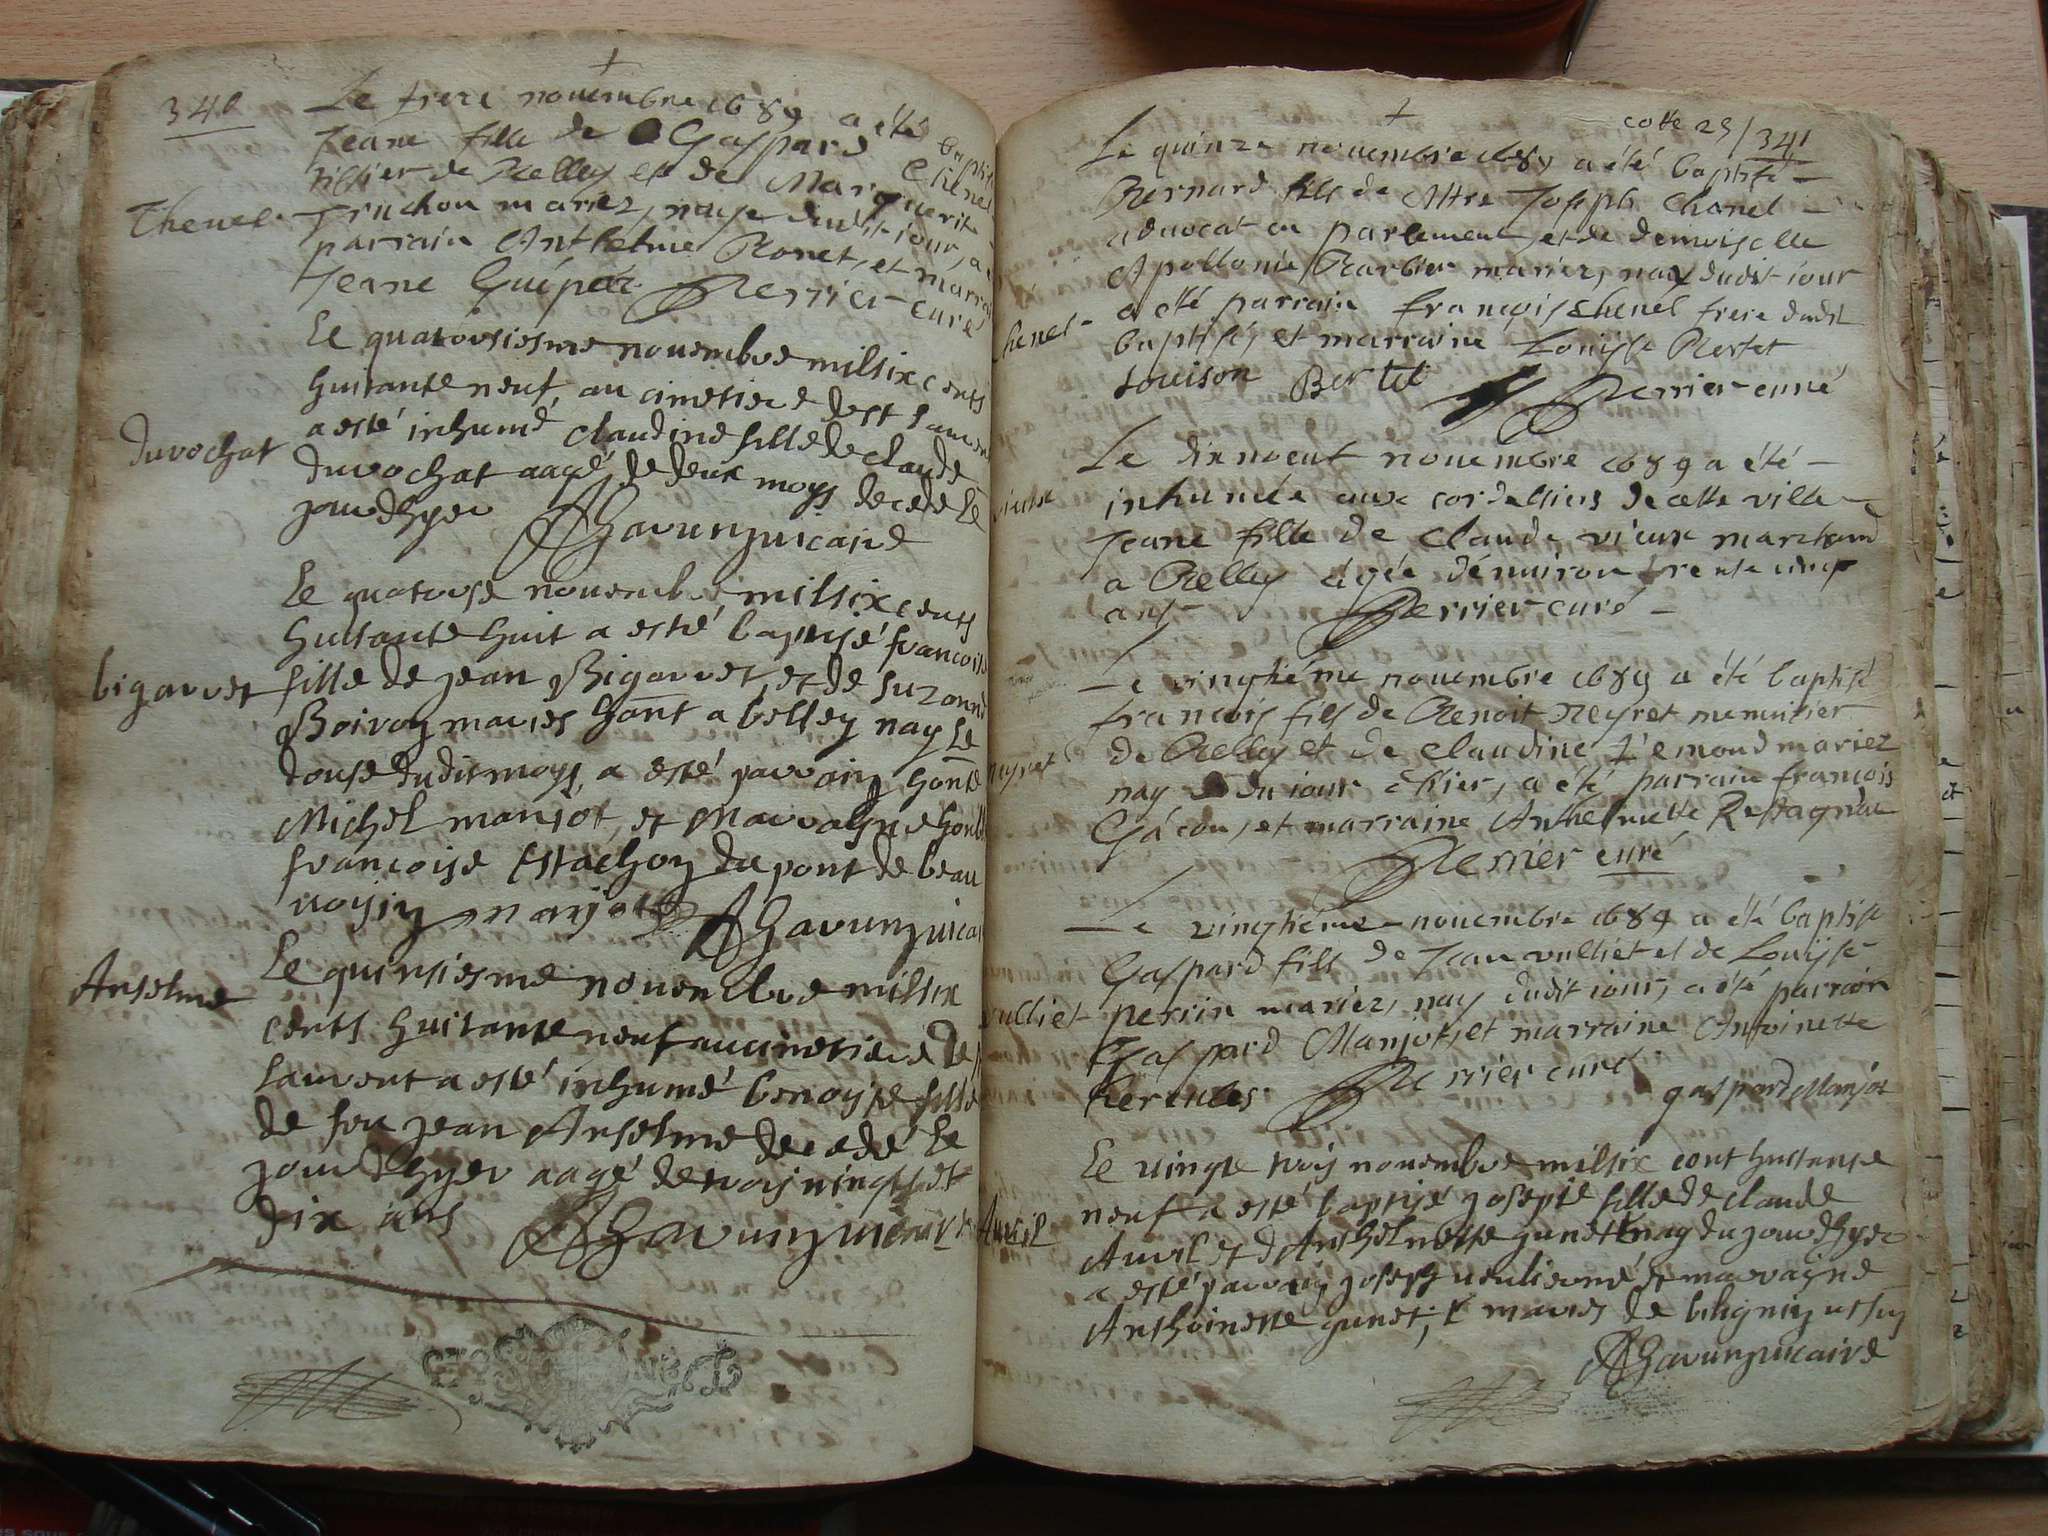 340
Le treze nouembre 1689 a été baptisé
Jeane fille de Gaspard Thenel
de Belley et de Marguerite
Thenel
Truchon mariez, naye dudit iour, a
parrain Anthelme Bonet, et marrai
Jeane Guépet Perrier curé
Le quatorsiesme nouembre milsix cents
huitante neuf, au cimetiere de st Laurent
a esté inhumé Claudine fille de claude
duvochat
duvochat aagé de deux moys decedé le
jour dhyer Ravunzvicaire
Le quatorse nouembre milsix cents
huitante huit a esté baptisé francoise
bigarret
fille de jean Bigarret, et de suzanne
Boiron maries hont a belley nay le
douse dudit moys, a esté parrain honte
Michel manjot, et Marrayne honble
francoise Estachon du pont de beau
voysin manjot Ravunzvicai
Anselme
Le quinsiesme nouembre milsix
cents huitante neuf au cimetiere de st
Laurent a esté inhumé benoyse fille
de feu jean Anselme decedé le
jour dhyer aagé de trois vingts et
dix ans Ravunzvicaire
cotte 25 / 341
Le quinze nouembre 1689 a été baptisé
Bernard fils de Mtre Joseph Chenel
aduocat en parlement, et de demoiselle
Apollonie Barbier mariez, nay dudit iour
henel
a été parrain françois Chenel frere dudit
baptisé, et marraine Louise Bertet
Louison Bertet Perrier curé
Le dixneuf nouembre 1689 a été
vieux
inhumée aux cordelliers de cette ville
Jeane fille de Claude vieux marchand
a Belley agée denuiron trente cinq
ans Perrier curé
Le vingtiéme nouembre 1689 a été baptisé
françois fils de Benoit Neyret menuisier
de Belley et de Claudine Lémond mariez
neyret
nay du iour d'hier, a été parrain françois
Gacon, et marraine Anthelmette Restagnac
Perrier curé
Le vingtiéme nouembre 1689 a été baptisé
Gaspard fils de Jean vulliet et de Louyse
vulliet
perrin mariez, nay dudit iour, a été parrain
Gaspard Manjot, et marraine Antoinette
hercules Perrier curé
gaspard Manjot
Le vingte trois nouembre milsix cent huitante
neuf a esté baptisé josepte fille de claude
Auvril
Auvril et dAnthelmette gunet nay du jour dhyer
a esté parrain joseph et marrayne
Anthoinette gunet, maries de billignin
Ravunzvicaire